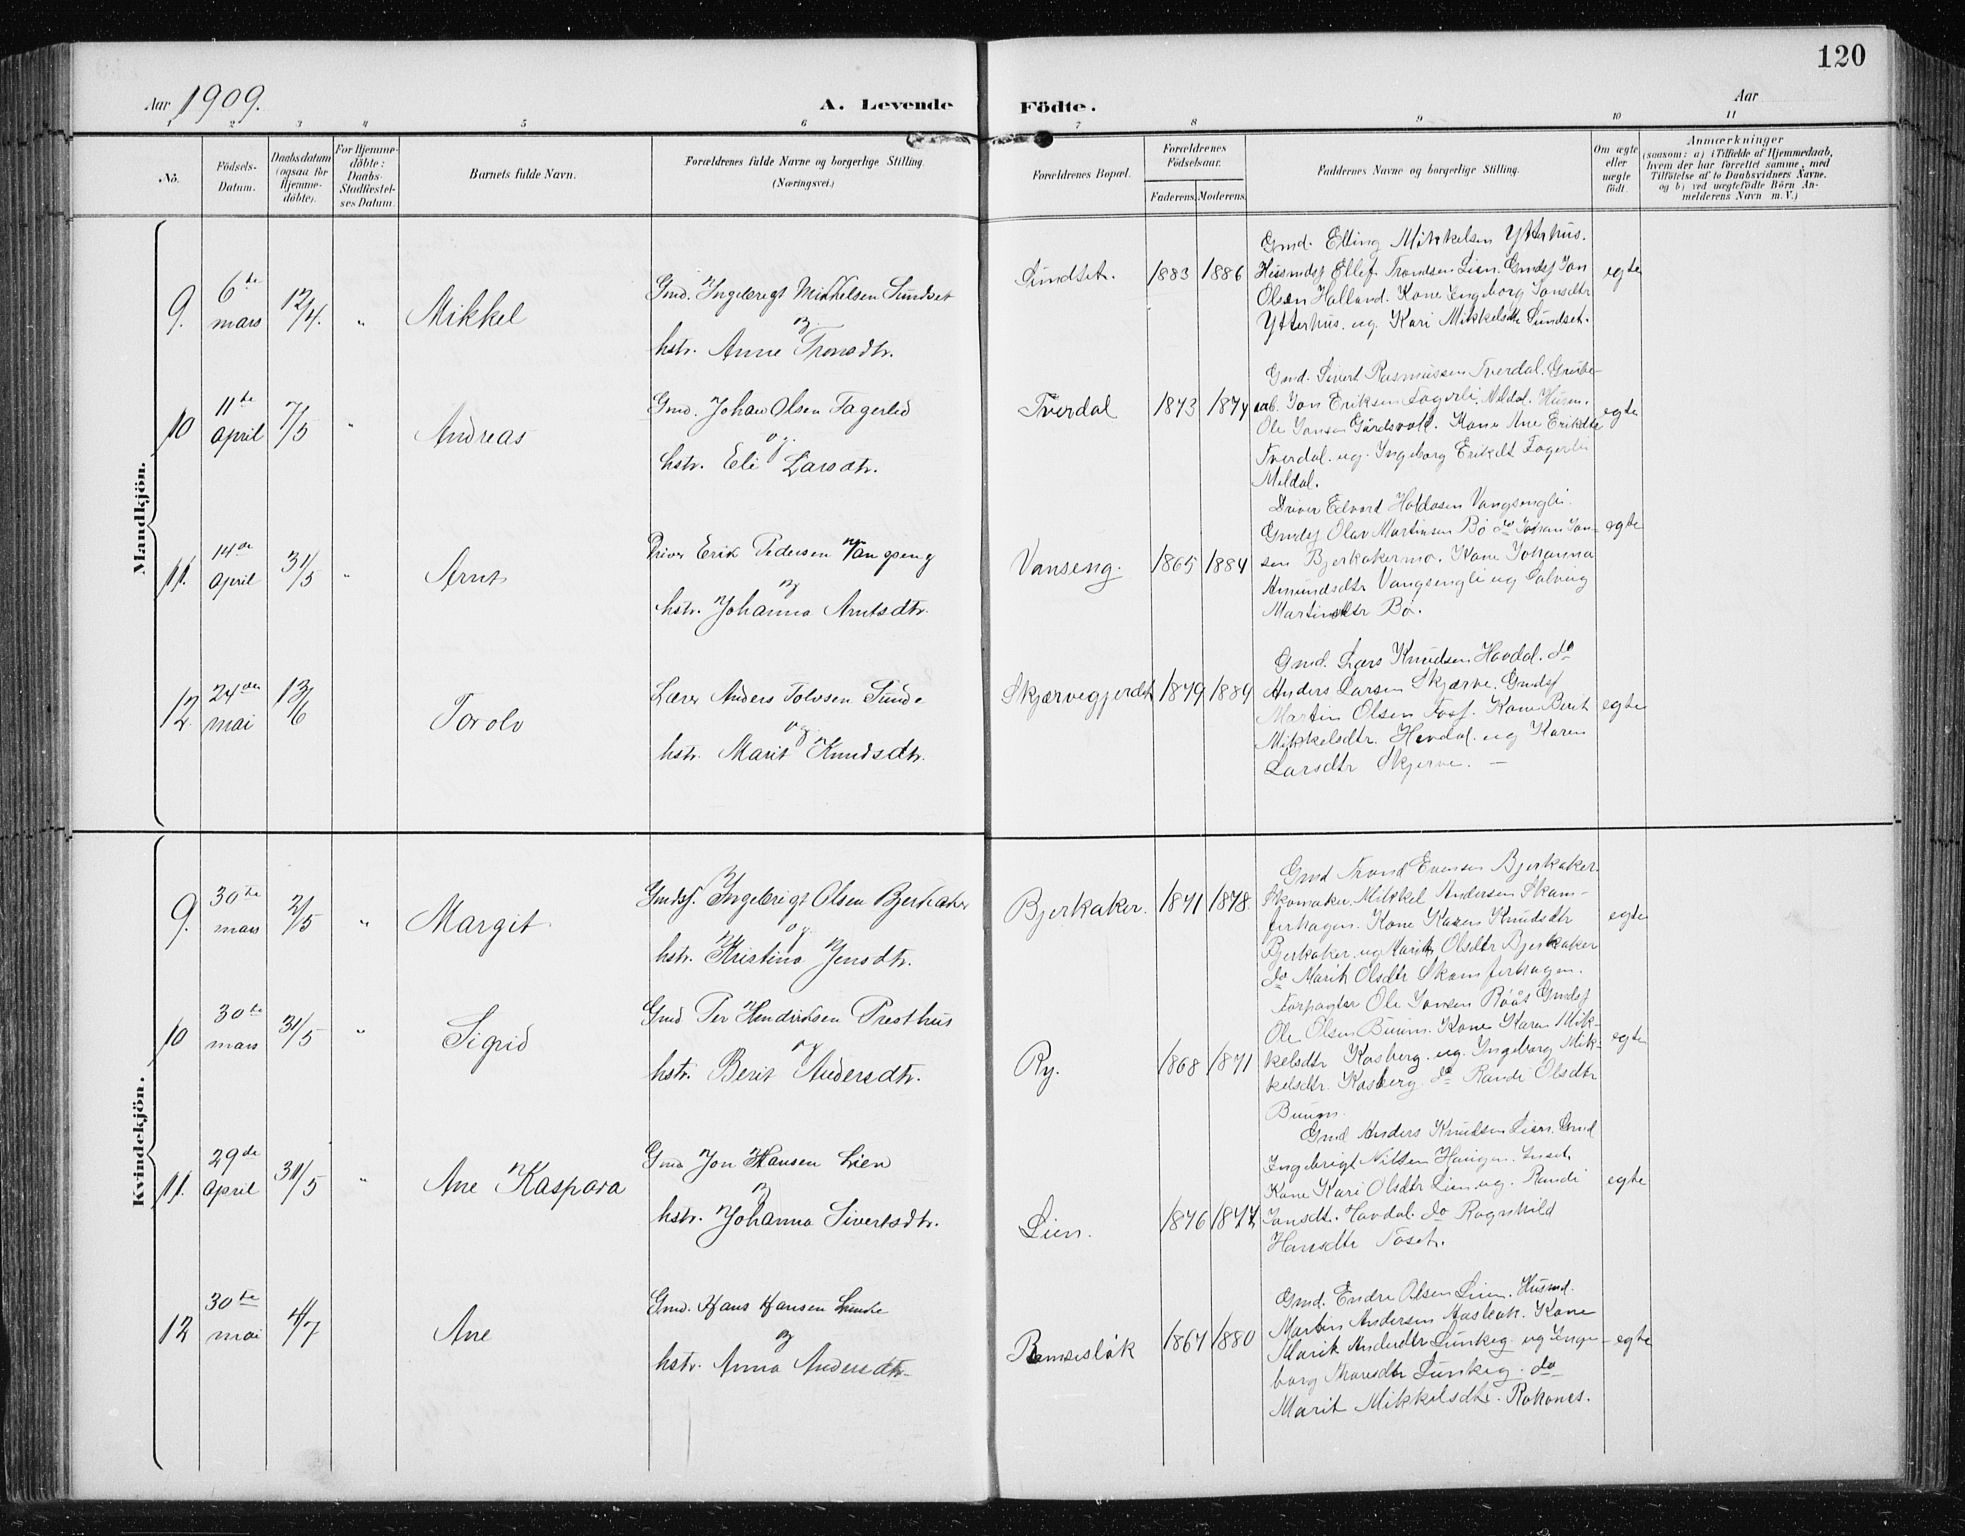 120
Aar 1909.
A. Levende Födte.
Aar
1 2 3 4 5 6 7 8 9 10 11
No.
Födsels-
Datum.
Daabsdatum
(ogsaa for
Hjemme-
döbte).
For Hjemme-
döbte:
Daabs-
Stadfæstel-
ses Datum.
Barnets fulde Navn.
Forældrenes fulde Navne og borgerlige Stilling.
(Næringsvei.)
Forældrenes Bopæl.
Forældrenes
Födselsaar.
Faderens.
Moderens.
Faddernes Navne og borgerlige Stilling.
Om ægte
eller
uægte
födt.
Anmærkninger
(saasom: a) i Tilfælde af Hjemmedaab,
hvem der har forrettet samme, med
Tilföielse af to Daabsvidners Navne.
og b) ved uægtefödte Börn An-
melderens Navn m. V.)
Mandkjön.
9. 6te mars 12/4. " Mikkel
Gmd. Ingebrigt Mikkelsen Sundset
og
hstr. Anne Tronsdtr.
Sundset. 1883 1886
Gmd. Elling Mikkelsen Ytterhus.
Husmdsf Ellef Trondsen Lien. Gmdsf Jon
Olsen Halland. Kone Ingeborg Jonsdtr
Ytterhus. og. Kari Mikkelsdtr Sundset.
egte
10 11te April 7/5 " Andreas
Gmd. Johan Olsen Fagerlid
og.
hstr. Eli Larsdtr.
Tverdal 1873 1874
Gmd. Sivert Rasmussen Tverdal. Grube-
arb. Jon Eriksen Fagerli, Meldal. Husm.
Ole Jonsen Gårdsvoll. Kone Ane Eriksdtr
Tverdal. og. Ingeborg Eriksdt Fagerli
Meldal.
egte
11. 14de April 31/5 " Arnt
Driver Erik Pedersen Vangseng
og
hstr. Johanna Arntsdtr.
Vanseng. 1865 1884
Driver Edvard Haldosen Vangsengli.
Gmdsf Olav Martinsen Bø do Johan Jon-
sen Bjerkakermo. Kone Johanna
Amundsdtr Vangsengli og Solveig
Martinsdtr Bø.
egte
12. 24de mai 13/6 Torolv
Lærer Anders Tolvsen Sunde
og.
hstr. Marit Knudsdtr.
Skjærvegjerdet 1879 1889
Gmd. Lars Knudsen Hovdal. do
Anders Larsen Skjærve. Gmdsf
Martin Olsen Foss. Kone Berit
Mikkelsdtr. Hovdal. og Karen
Larsdtr Skjerve. —
egte
Kvindekjön.
9. 30te mars 2/5 " Margit
Gmdsf. Ingebrigt Olsen Bjerkaker
og.
hstr. Kristina Jensdtr.
Bjerkaker. 1871 1878.
Gmd Trond Evensen Bjerkaker.
Skomaker Mikkel Andersen Skam-
ferhagen. Kone Karen Knudsdtr
Bjerkaker. og Marit Olsdtr Bjerkaker
do Marit Olsdtr Skamferhagen.
egte
10 30te mars 31/5 " Sigrid
Gmd Per Hendriksen Presthus
og
hstr. Berit Andersdtr.
Ry. 1868 1871
Forpagter Ole Jonsen Röös Gmdsf
Ole Olsen Buum. Kone Karen Mik-
kelsdtr Kasberg. og. Ingeborg Mik-
kelsdtr. Kasberg. do Randi Olsdtr
Buum.
egte
11. 29de April 31/5 " Ane Kaspara
Gmd Jon Hansen Lien
og
hstr. Johanna Sivertsdtr.
Lien. 1876 1877
Gmd Anders Knudsen Lien. Gmd
Ingebrigt Nilsen Haugen. Inset.
Kone Kari Olsdtr Lien og. Randi
Jonsdt. Hovdal. do Ragnhild
Hansdtr Foset.
egte
12 30te mai 4/7 Ane
Gmd. Hans Hansen
og
hstr. Anna Andersdtr.
1867 1880
Gmd. Endre Olsen Lien. Husmd.
Martin Andersen Kone
Marit Andersdtr og Inge-
borg do
Marit Mikkelsdtr.
egte